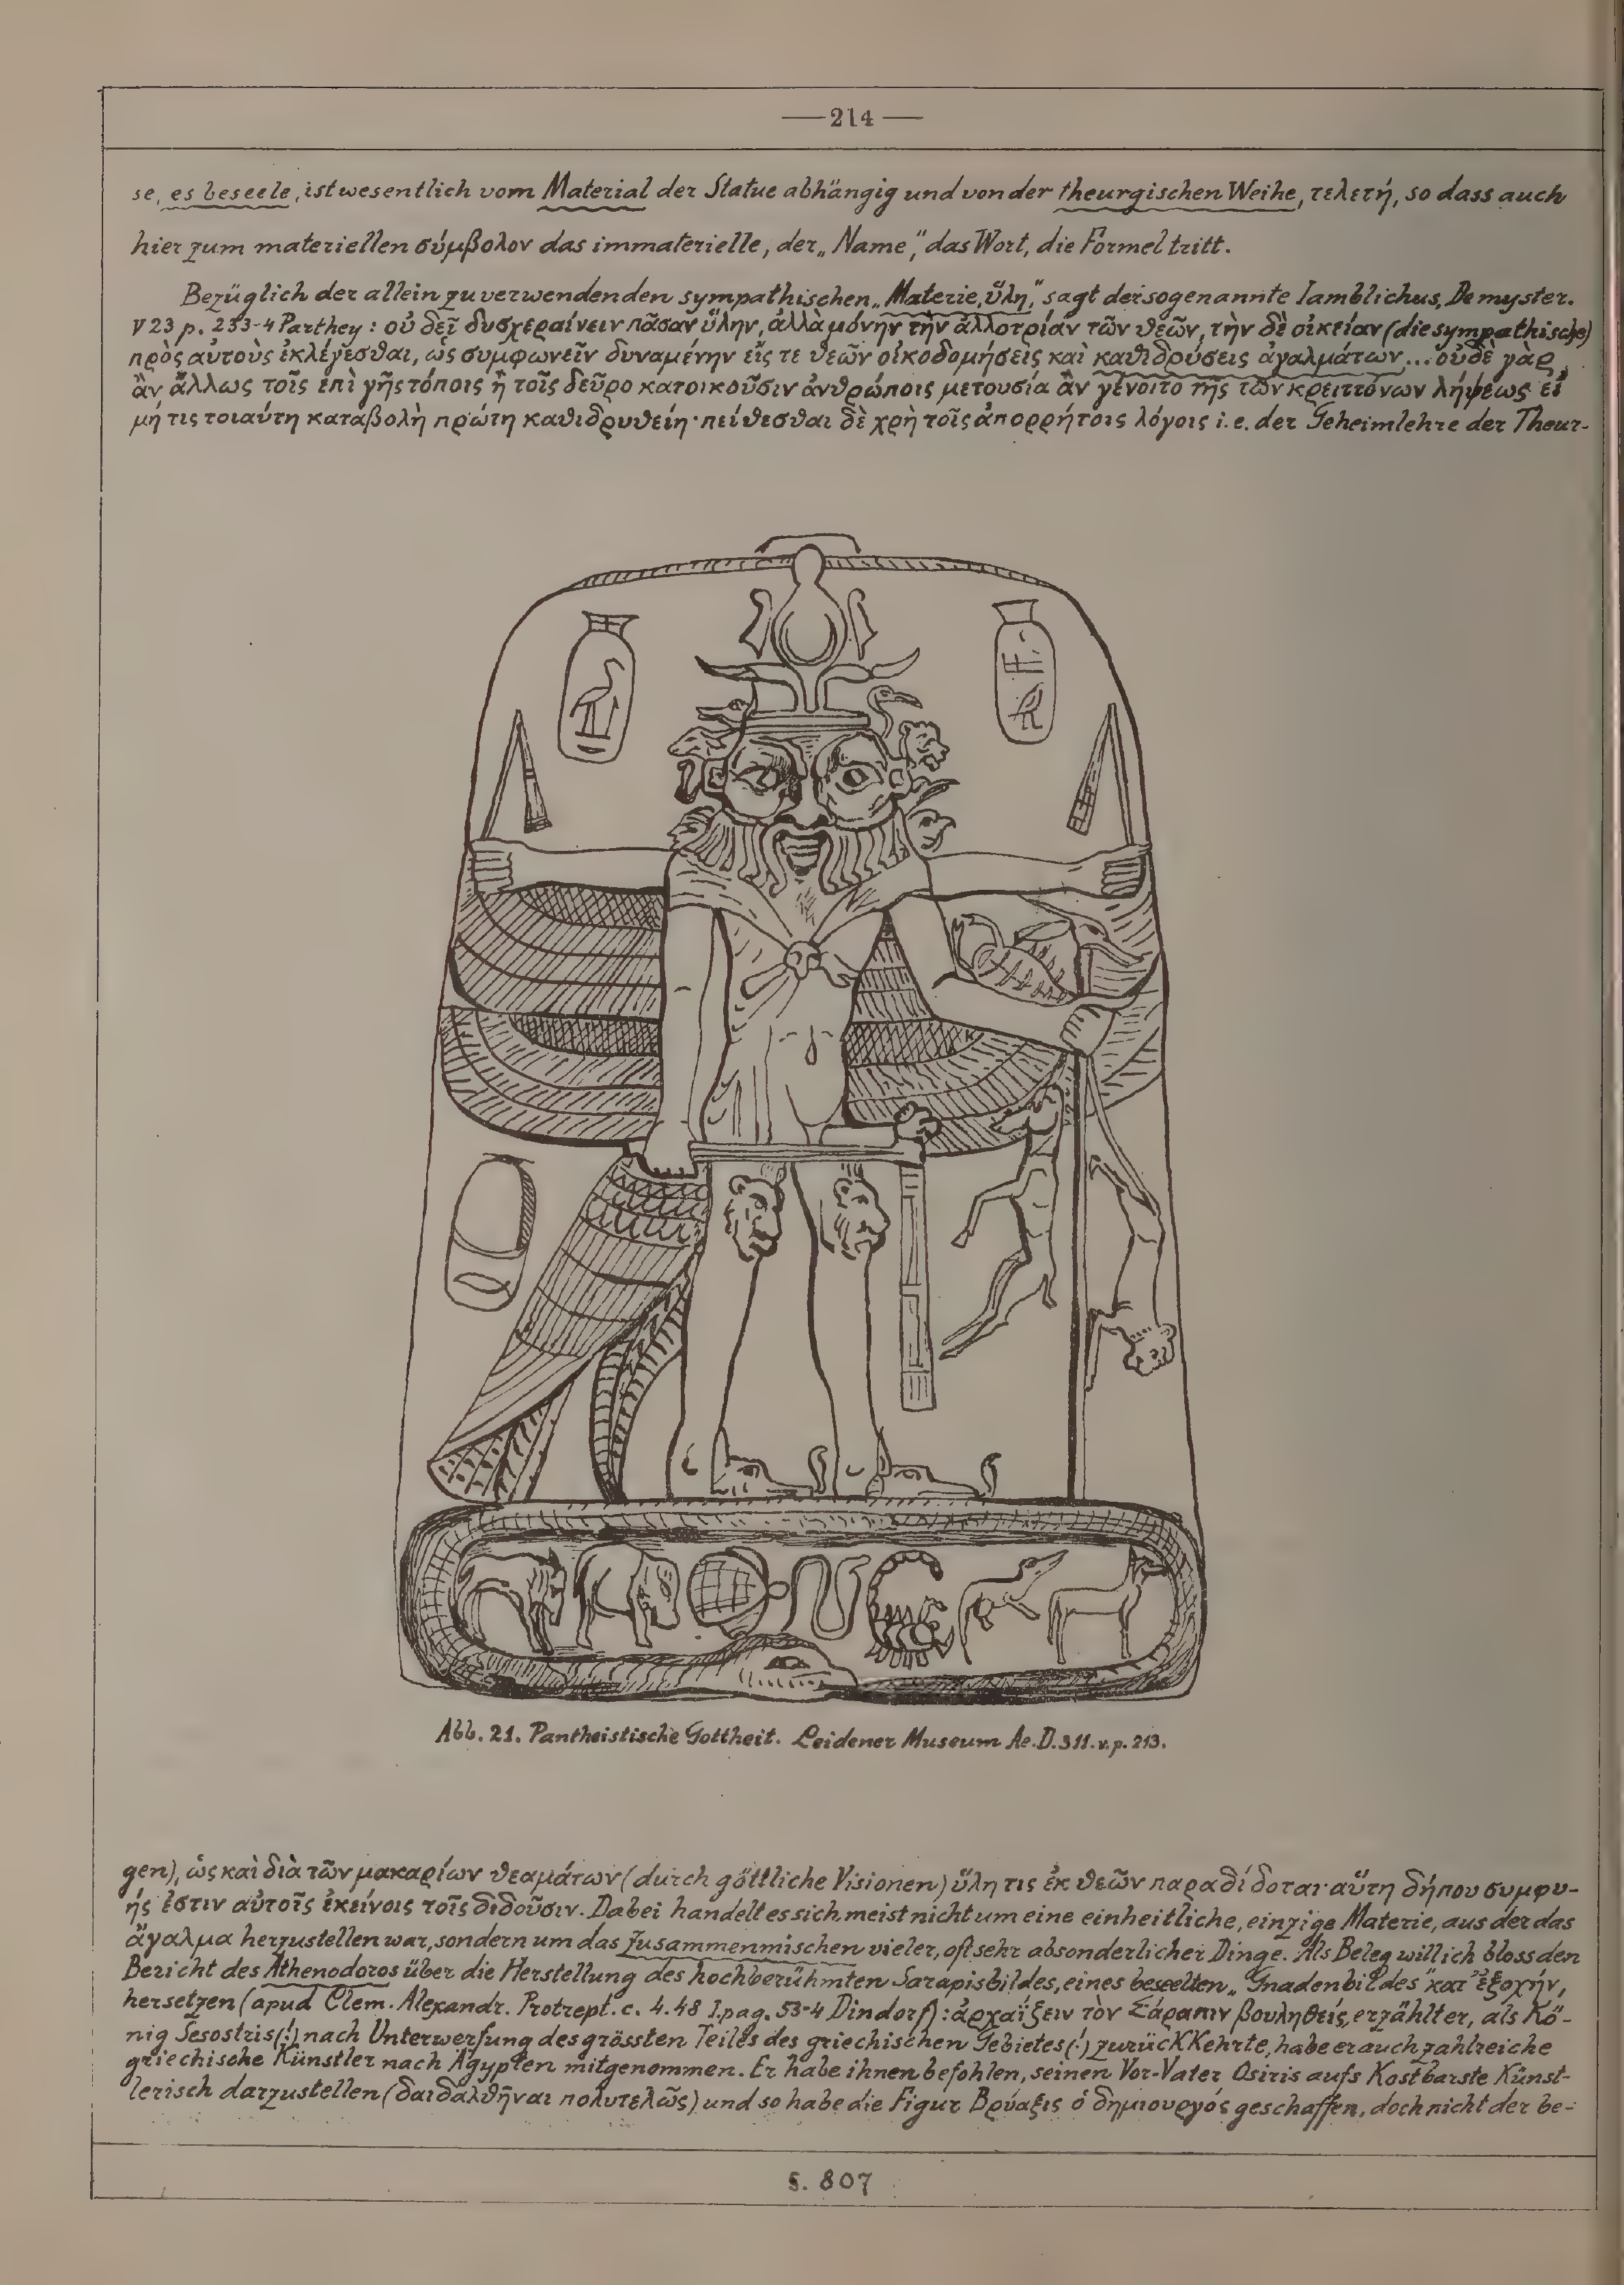 —214—
se, es beseele, ist wesentlich vom Material der Statue abhängig und von der theurgischen Weihe, τελετή, so dass auch
hier zum materiellen σύμβολον das immaterielle, der „Name", das Wort, die Formel tritt.
Bezüglich der allein zu verwendenden sympathischen „Materie, ὕλη," sagt der sogenannte Iamblichus, De myster.
V 23 p. 233-4 Parthey: οὐ δεῖ δυσχεραίνειν πᾶσαν ὕλην, ἀλλὰ μόνην τὴν ἀλλοτρίαν τῶν θεῶν, τὴν δὲ οἰκείαν (die sympathische)
πρὸς αὐτοὺς ἐκλέγεσθαι, ὡς συμφωνεῖν δυναμένην εἴς τε θεῶν οἰκοδομήσεις καὶ καθιδρύσεις ἀγαλμάτων... οὐδὲ γὰρ
ἂν ἄλλως τοῖς ἐπὶ γῆς τόποις ἢ τοῖς δεῦρο κατοικοῦσιν ἀνθρώποις μετουσία ἂν γένοιτο τῆς τῶν κρειττόνων λήψεως εἰ
μή τις τοιαύτη καταβολὴ πρώτη καθιδρυθείη· πείθεσθαι δὲ χρὴ τοῖς ἀπορρήτοις λόγοις i.e. der Geheimlehre der Theur-
Abb. 21. Pantheistische Gottheit. Leidener Museum Ae. D. 311. v. p. 213.
gen), ὡς καὶ διὰ τῶν μακαρίων θεαμάτων (durch göttliche Visionen) ὕλη τις ἐκ θεῶν παραδίδοται· αὕτη δήπου συμφυ-
ής ἐστιν αὐτοῖς ἐκείνοις τοῖς διδοῦσιν. Dabei handelt es sich meist nicht um eine einheitliche, einzige Materie, aus der das
ἄγαλμα herzustellen war, sondern um das Zusammenmischen vieler, oft sehr absonderlicher Dinge. Als Beleg will ich bloss den
Bericht des Athenodoros über die Herstellung des hochberühmten Sarapisbildes, eines beseelten „Gnadenbildes" κατ' ἐξοχήν,
hersetzen (apud Clem. Alexandr. Protrept. c. 4. 48 I. pag. 53-4 Dindorf): ἀρχαΐζειν τὸν Σάραπιν βουληθείς, erzählt er, als Kö-
nig Sesostris(!) nach Unterwerfung des grössten Teiles des griechischen Gebietes(!) zurückkehrte, habe er auch zahlreiche
griechische Künstler nach Ägypten mitgenommen. Er habe ihnen befohlen, seinen Vor-Vater Osiris aufs Kostbarste künst-
lerisch darzustellen (δαιδαλθῆναι πολυτελῶς) und so habe die Figur Βρύαξις ὁ δημιουργός geschaffen, doch nicht der be-
S. 807